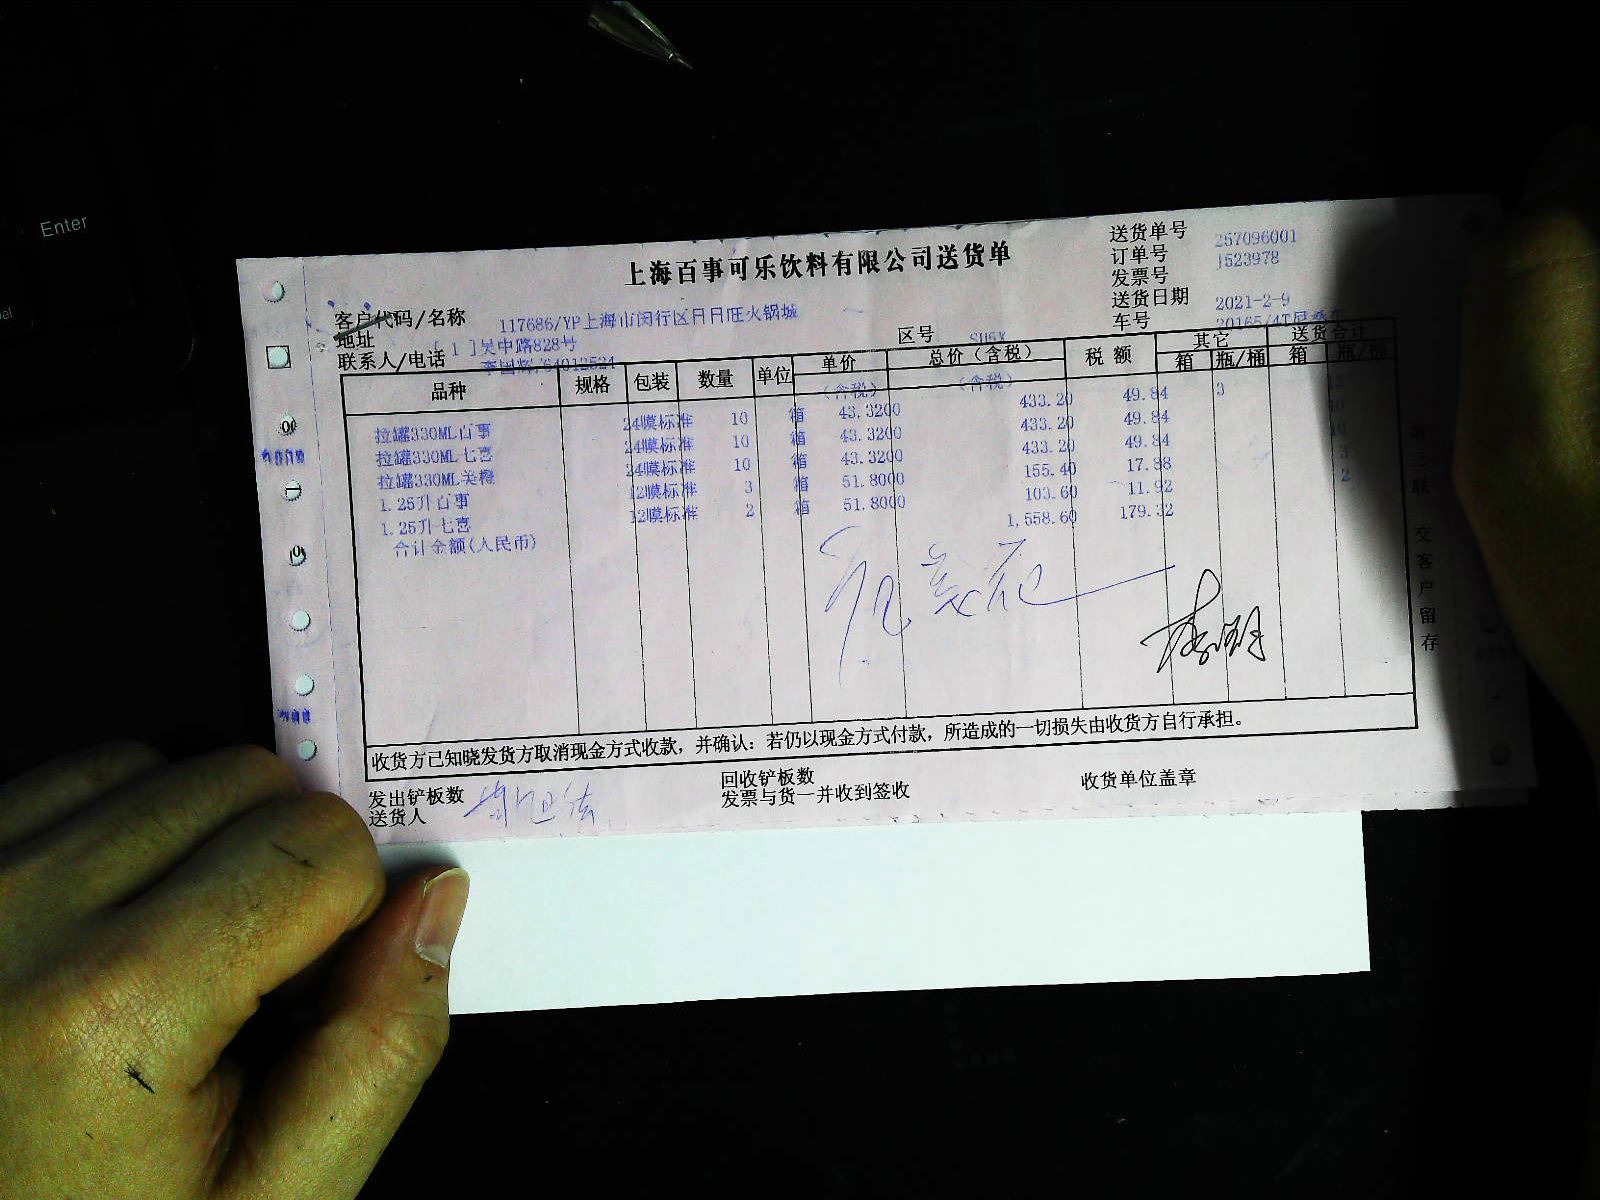 Enter
上海百事可乐饮料有限公司送货单
送货单号 257096001
订单号 J523978
发票号
送货日期 2021-2-9
车号 20165/4T
客户代码/名称 117686/YP上海市闵行区日日旺火锅城
地址 [ 1 ]吴中路828号
联系人/电话 李国辉/64012524
区号
品种 规格 包装 数量 单位 单价 总价（含税） 税额 其它 送货合计
(含税) (含税) 箱 瓶/桶 箱 瓶/桶
拉罐330ML百事 24膜标准 10 箱 43.3200 433.20 49.84 3 13
拉罐330ML七喜 24膜标准 10 箱 43.3200 433.20 49.84 10
拉罐330ML美橙 24膜标准 10 箱 43.3200 433.20 49.84 10
1.25升百事 12膜标准 3 箱 51.8000 155.40 17.88 3
1.25升七喜 12膜标准 2 箱 51.8000 103.60 11.92 2
合计金额(人民币) 1,558.60 179.32
收货方已知晓发货方取消现金方式收款，并确认：若仍以现金方式付款，所造成的一切损失由收货方自行承担。
发出铲板数 回收铲板数 收货单位盖章
送货人 发票与货一并收到签收
第三联 交客户留存